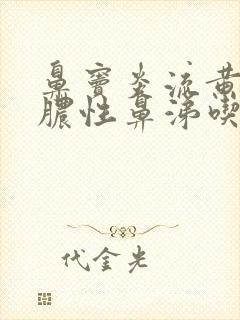 鼻窦炎流黄
脓性鼻涕喫
代金光